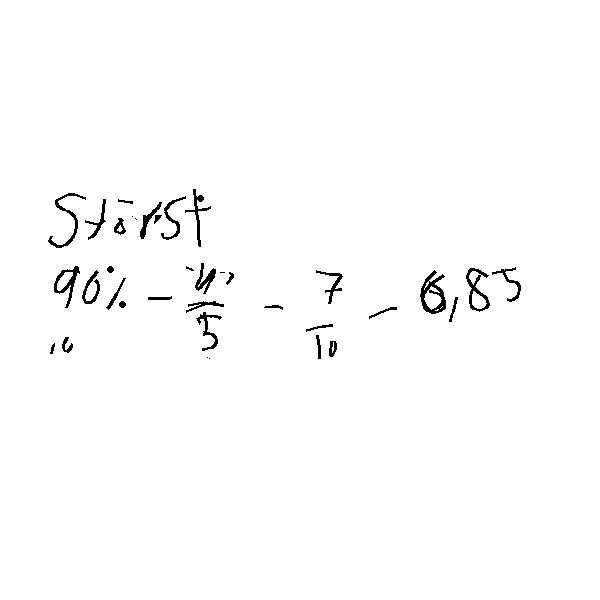 Störst
90% - 4/5 - 7/10 - 0,85